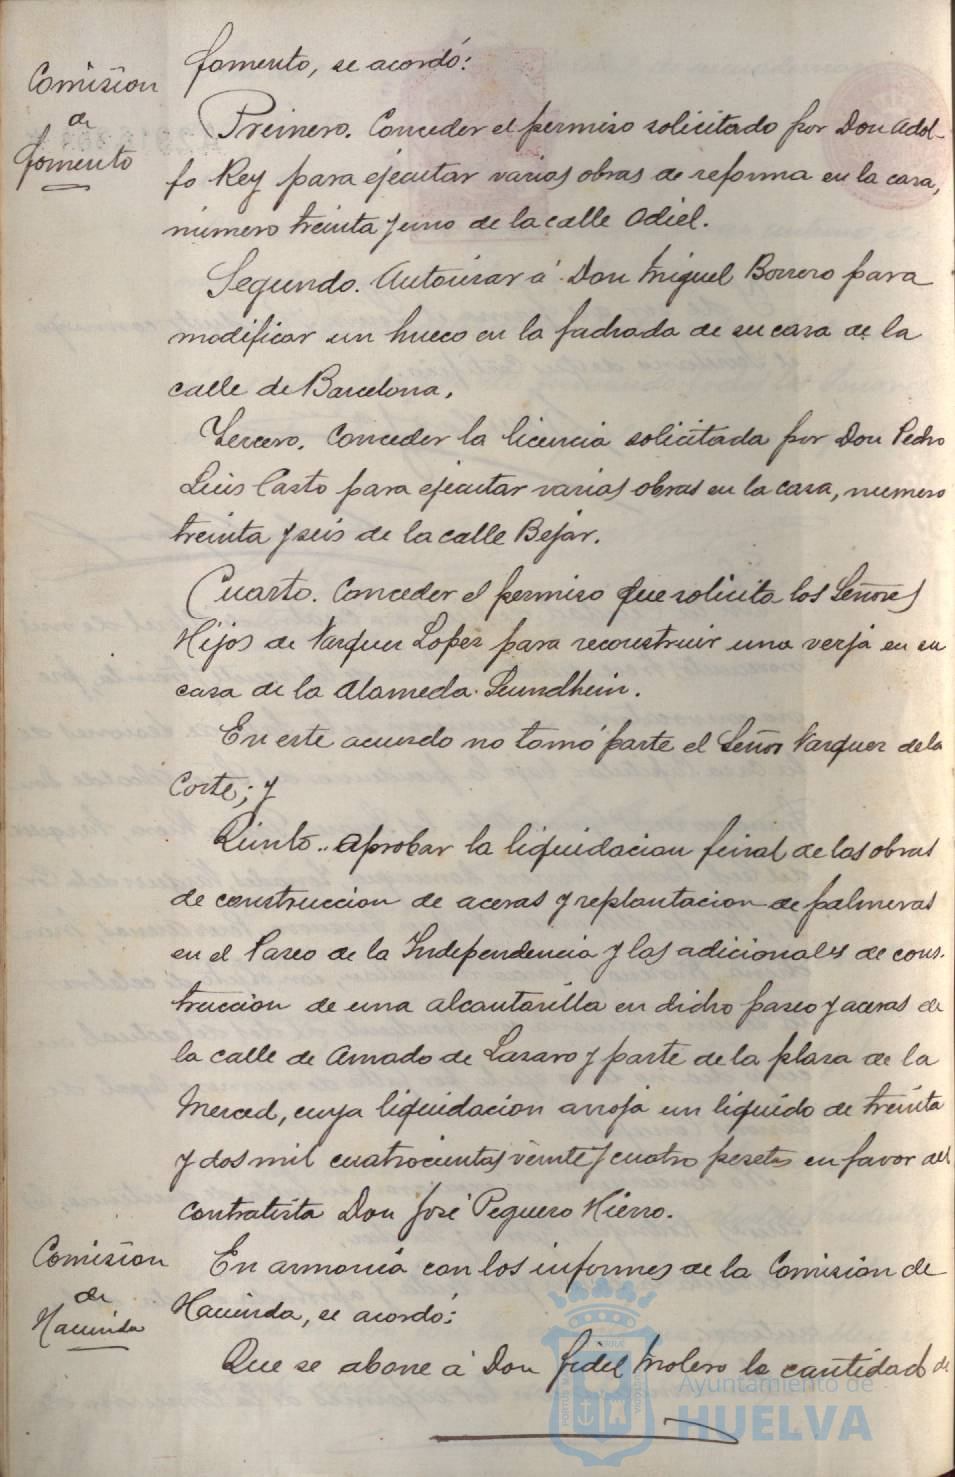 fomento, se acordó:
Comision
de
fomento
Primero. Conceder el permiso solicitado por Don Adol-
fo Rey para ejecutar varias obras de reforma en la casa,
número treinta y uno de la calle Odiel.
Segundo. Autorizar á Don Miguel Borrero para
modificar un hueco en la fachada de su casa de la
calle de Barcelona.
Tercero. Conceder la licencia solicitada por Don Pedro
Luis Casto para ejecutar varias obras en la casa, numero
treinta y seis de la calle Bejar.
Cuarto. Conceder el permiso que solicita los Señores
Hijos de Vazquez Lopez para reconstruir una verja en su
casa de la Alameda Sundhein.
En este acuerdo no tomó parte el Señor Vazquez de la
Corte; y
Quinto.. Aprobar la liquidacion final de las obras
de construccion de aceras y replantacion de palmeras
en el Paseo de la Independencia y las adicionales de cons-
truccion de una alcantarilla en dicho paseo y aceras de
la calle de Amado de Lazaro y parte de la plaza de la
Merced, cuya liquidacion arroja un liquido de treinta
y dos mil cuatrocientas veinte y cuatro pesetas en favor del
contratista Don José Peguero Hierro.
Comision
de
Hacienda
En armonia con los informes de la Comision de
Hacienda, se acordó:
Que se abone á Don Fidel Molero la cantidad de
Ayuntamiento de
HUELVA